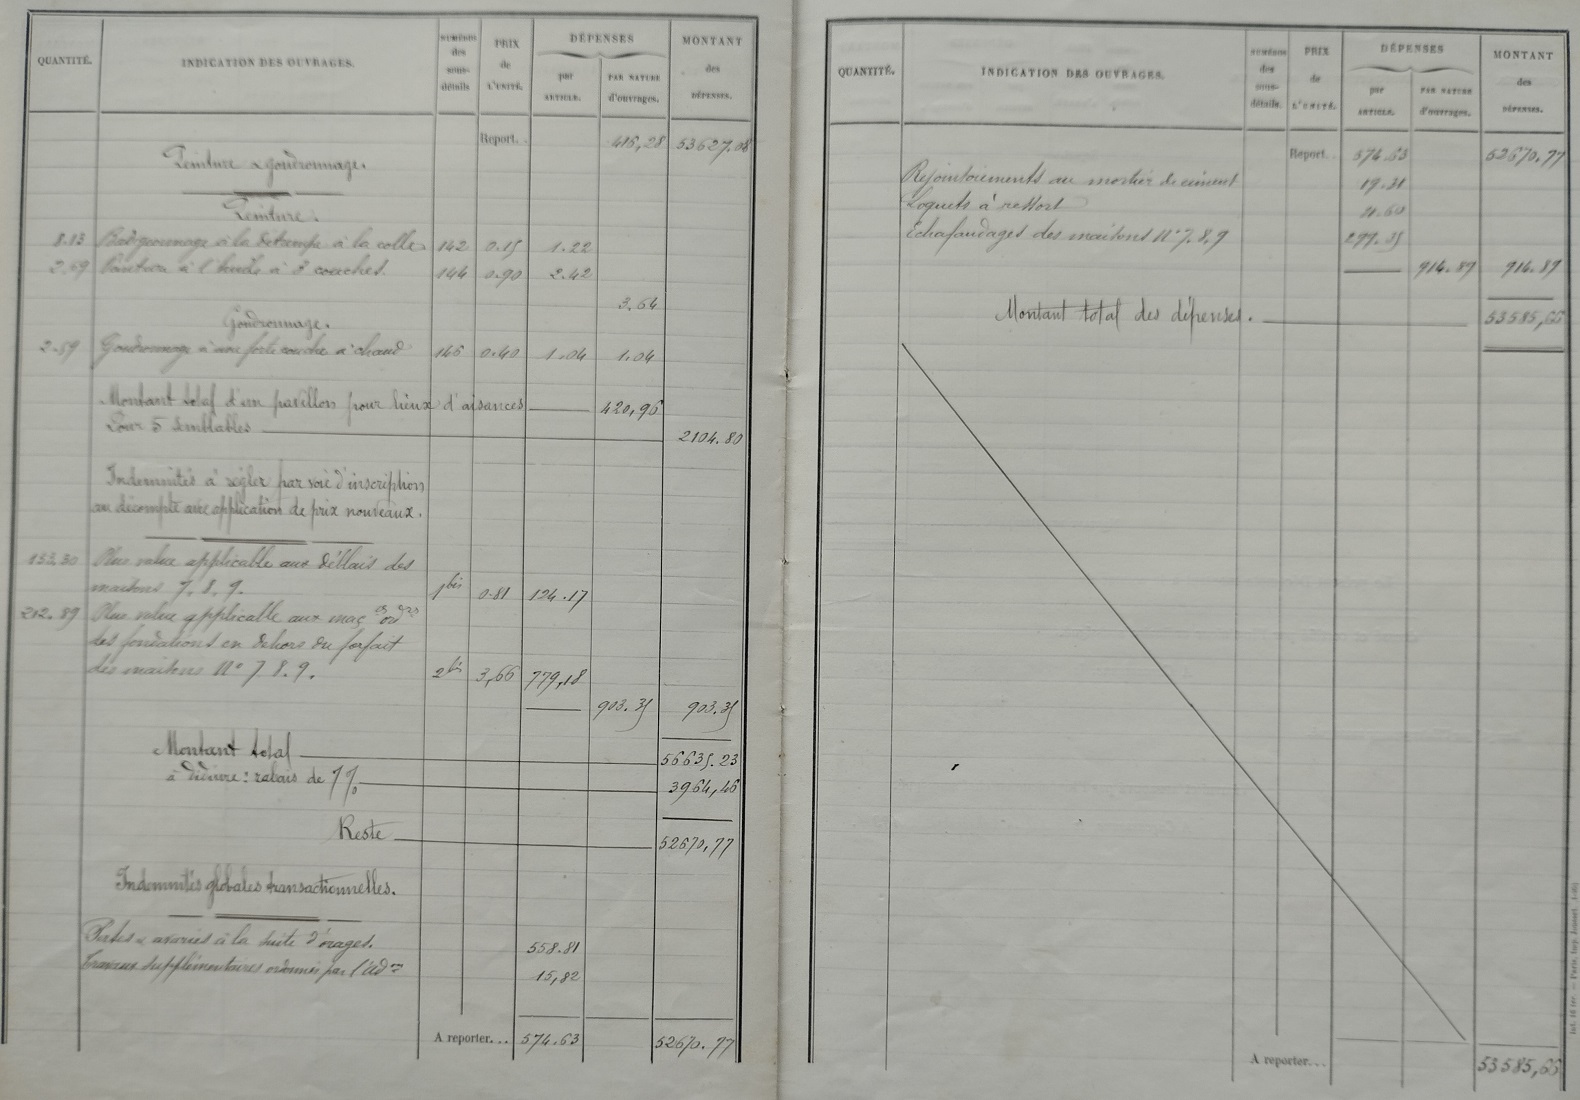 QUANTITÉ. INDICATION DES OUVRAGES. NUMÉROS des sous-détails PRIX de L'UNITÉ. DÉPENSES par ARTICLE. PAR NATURE d'ouvrages. MONTANT des DÉPENSES.
Report. 416,28 53627.08
Peinture & goudronnage.
Peinture.
8.13 Badigeonnage à la détrempe à la colle 142 0.15 1.22
2.69 Peinture à l'huile à 3 couches. 144 0.90 2.42
3.64
Goudronnage.
2.59 Goudronnage à une forte couche à chaud 146 0.40 1.04 1.04
Montant total d'un pavillon pour lieux d'aisances 420,96
Pour 5 semblables 2104.80
Indemnités à régler par voie d'inscription
au décompte avec application de prix nouveaux.
153.30 Plus value applicable aux déblais des
maisons 7. 8. 9. 1 bis 0.81 124.17
212.89 Plus value applicable aux maç
des fondations en dehors du forfait
des maisons N° 7. 8. 9. 2 bis 3,66 779,18
903.35 903.35
Montant total 56635.23
à déduire : rabais de 7% 3964,46
Reste 52670,77
Indemnités globales transactionnelles.
Pertes & avaries à la suite d'orages. 558.81
Travaux supplémentaires ordonnés par l'Ad on 15,82
A reporter... 574.63 52670.77
QUANTITÉ. INDICATION DES OUVRAGES. NUMÉROS des sous-détails. PRIX de L'UNITÉ. DÉPENSES par ARTICLE. PAR NATURE d'ouvrages. MONTANT des DÉPENSES.
Report. 574.63 52670.77
Rejointoiements au mortier de ciment 19.31
Loquets à ressort
Echafaudages des maisons N° 7. 8. 9 299.35
914.89 914.89
Montant total des dépenses. 53585,66
A reporter... 53585,66